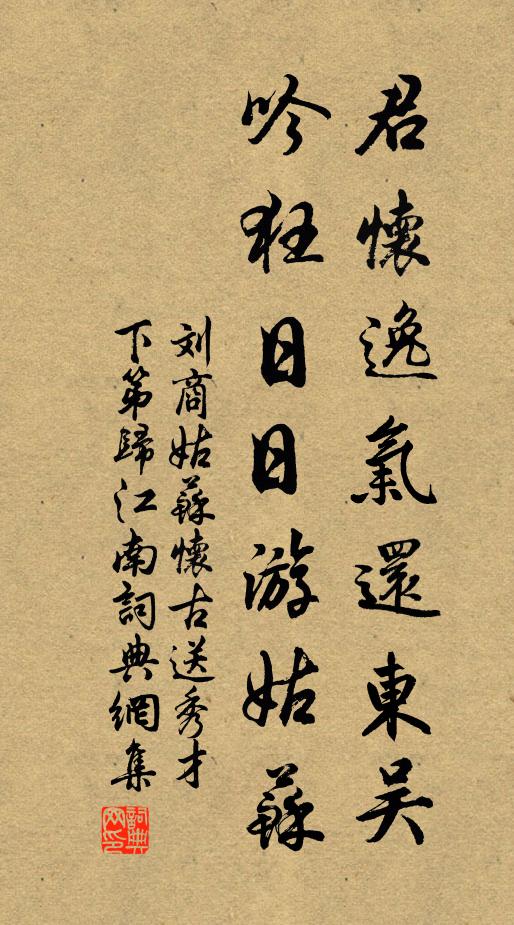 君懷逸氣還東吳
吟狂日日游姑蘇
刘商姑蘇懷古送秀才
下第歸江南詞典網集
詞典网印